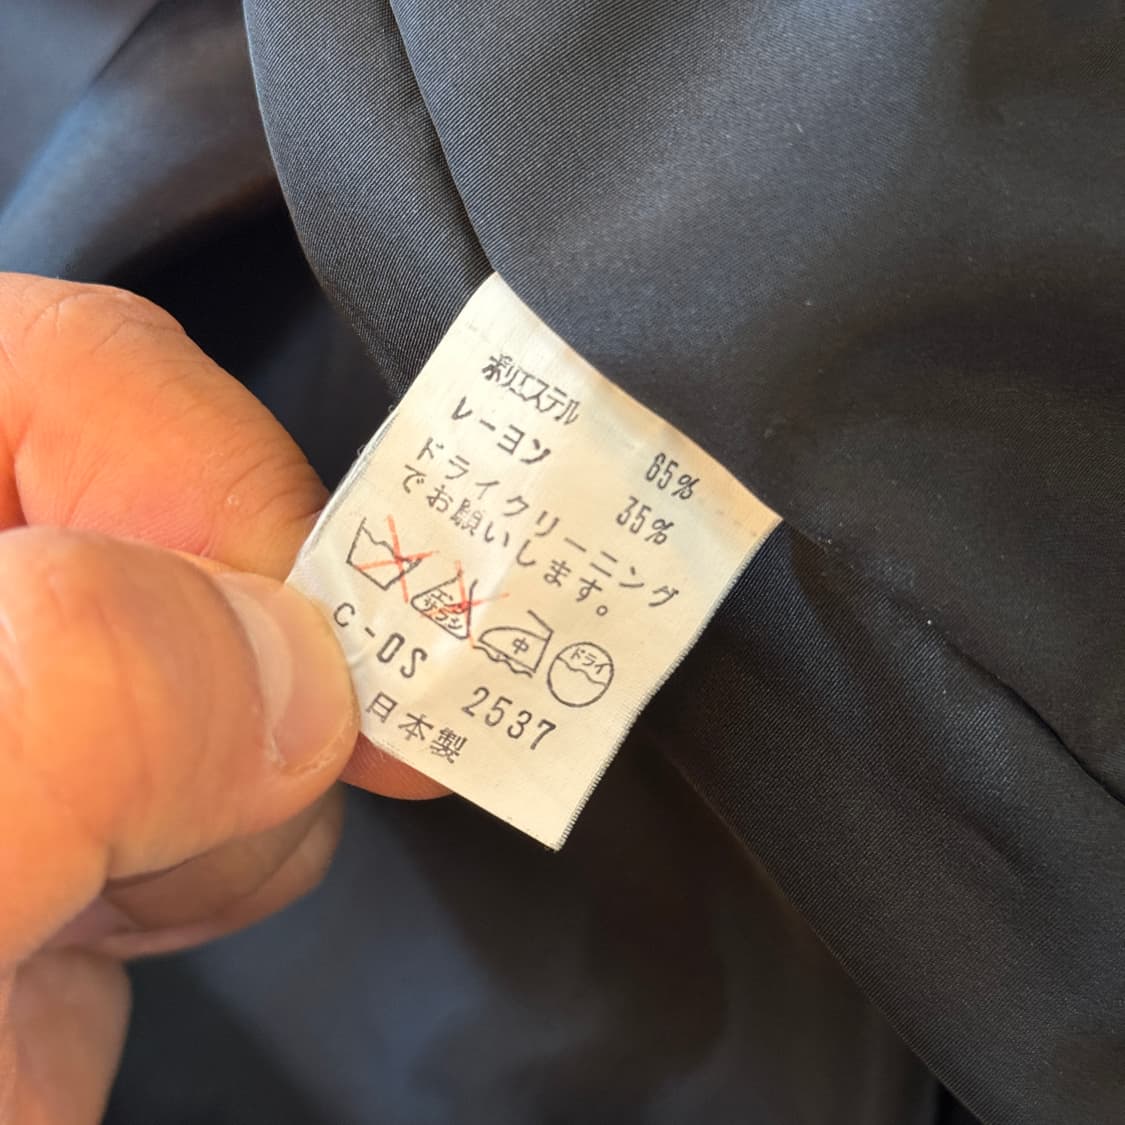 ポリエステル 65%
レーヨン 35%
ドライクリーニング
でお願いします。
エンソサラシ 中 ドライ
C-OS 2537
日本製